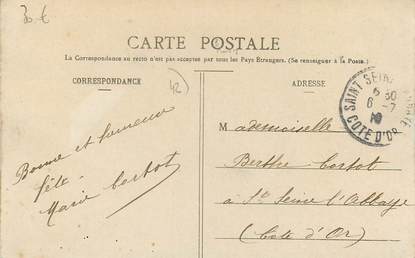 30 €
CARTE POSTALE
La Correspondance au recto n'est pas acceptée par tous les Pays Etrangers. (Se renseigner à la Poste.)
CORRESPONDANCE
42
ADRESSE
SAINT SEINE L'ABBAYE
6 30
6 -7
COTE D'OR
Bonne et heureuse
fête
Marie Cortot
Mademoiselle
Berthe Cortot
à St Seine l'Abbaye
(Cote d'Or)